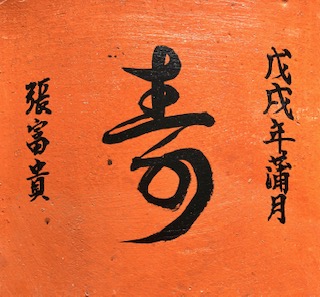 戊戌年蒲月
寿
張富貴